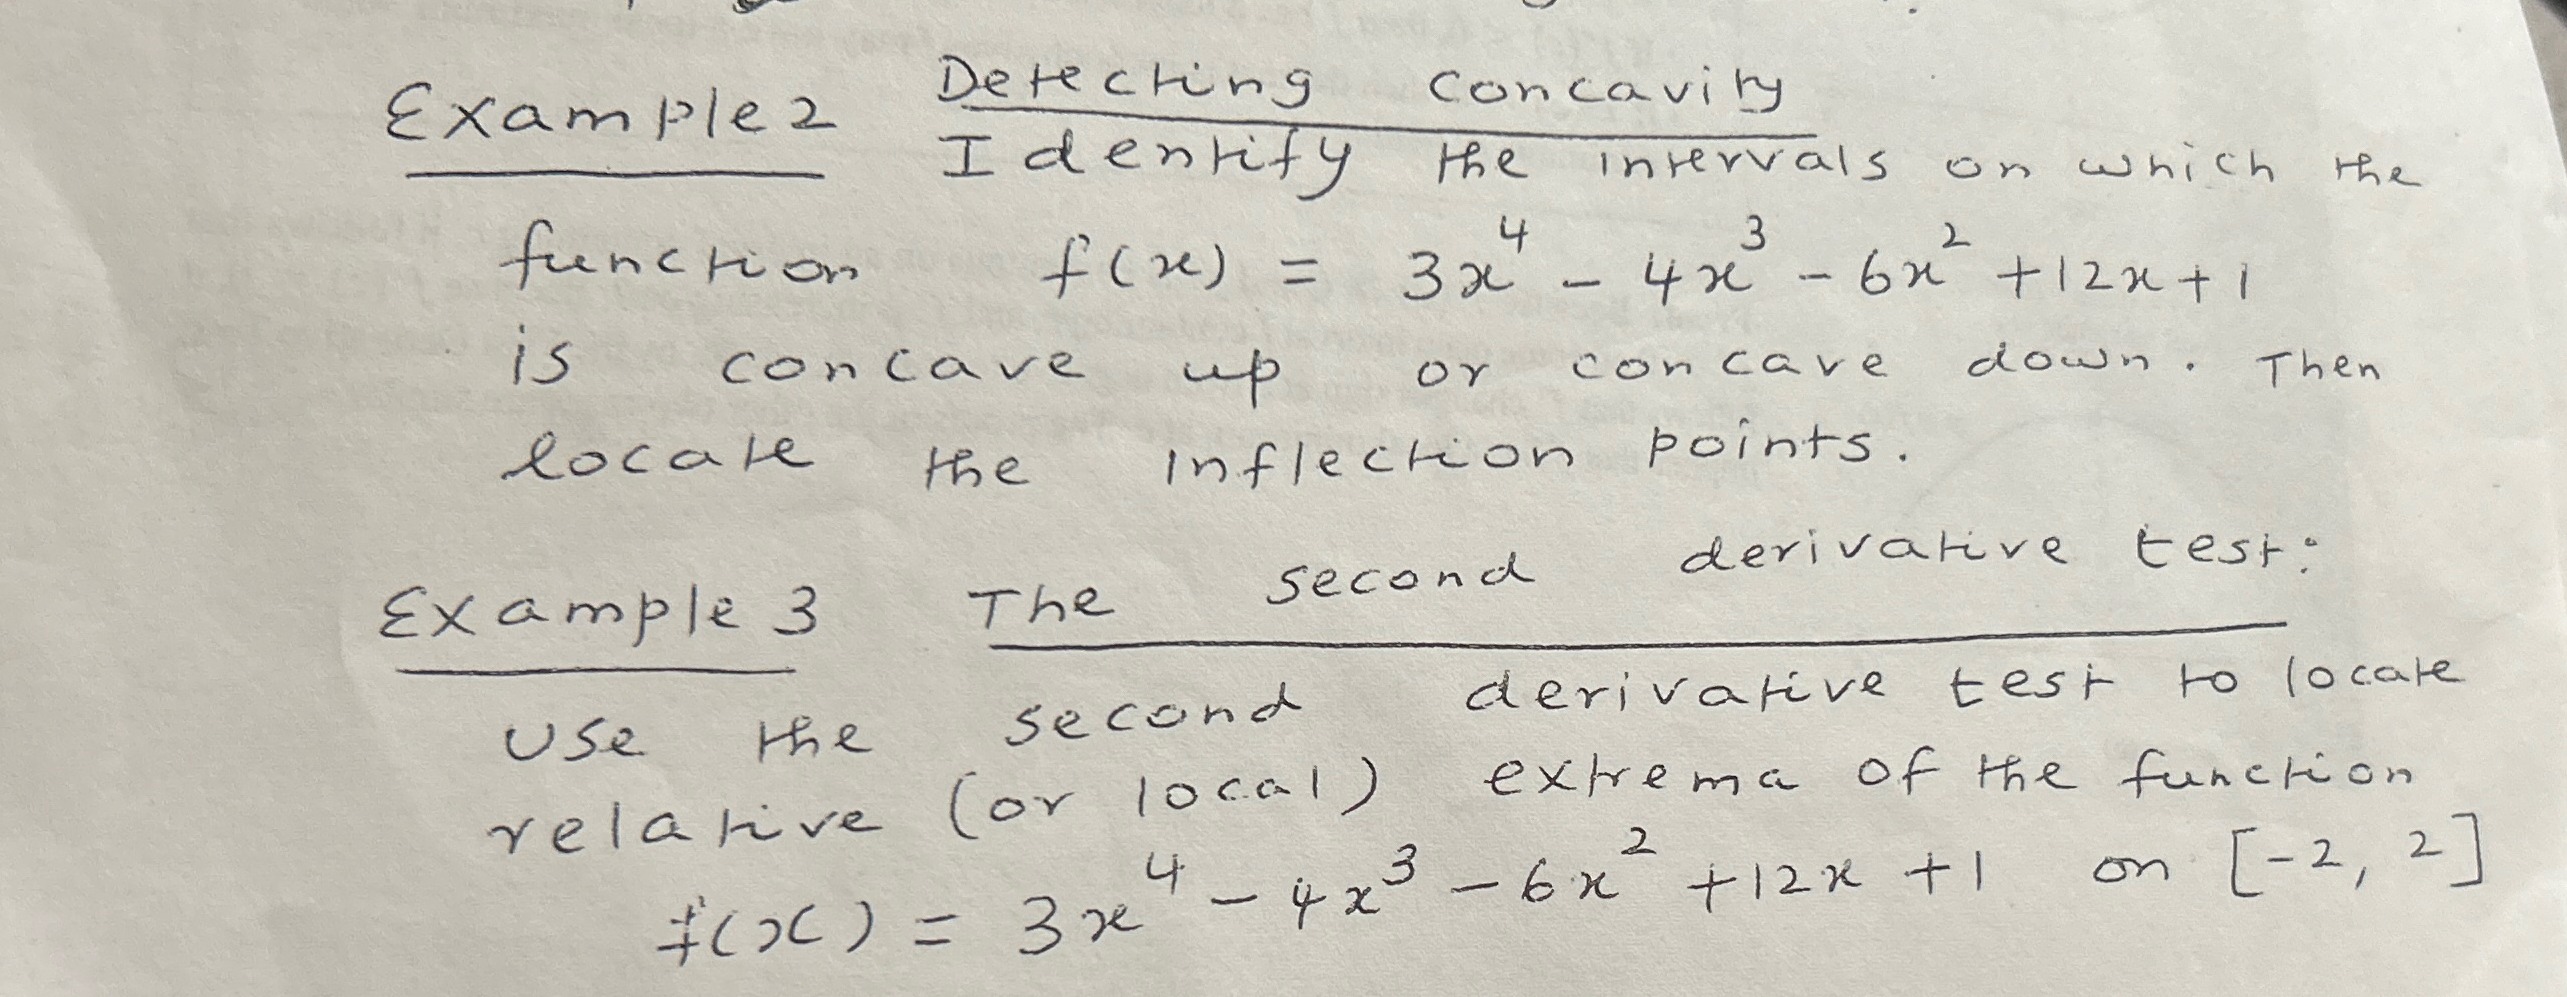 Example 2 Detecting Concavity
Identify the intervals on which the
function f(x) = 3x⁴ - 4x³ - 6x² + 12x + 1
is concave up or concave down. Then
locate the inflection points.
Example 3 The second derivative test:
Use the second derivative test to locate
relative (or local) extrema of the function
f(x) = 3x⁴ - 4x³ - 6x² + 12x + 1 on [-2, 2]